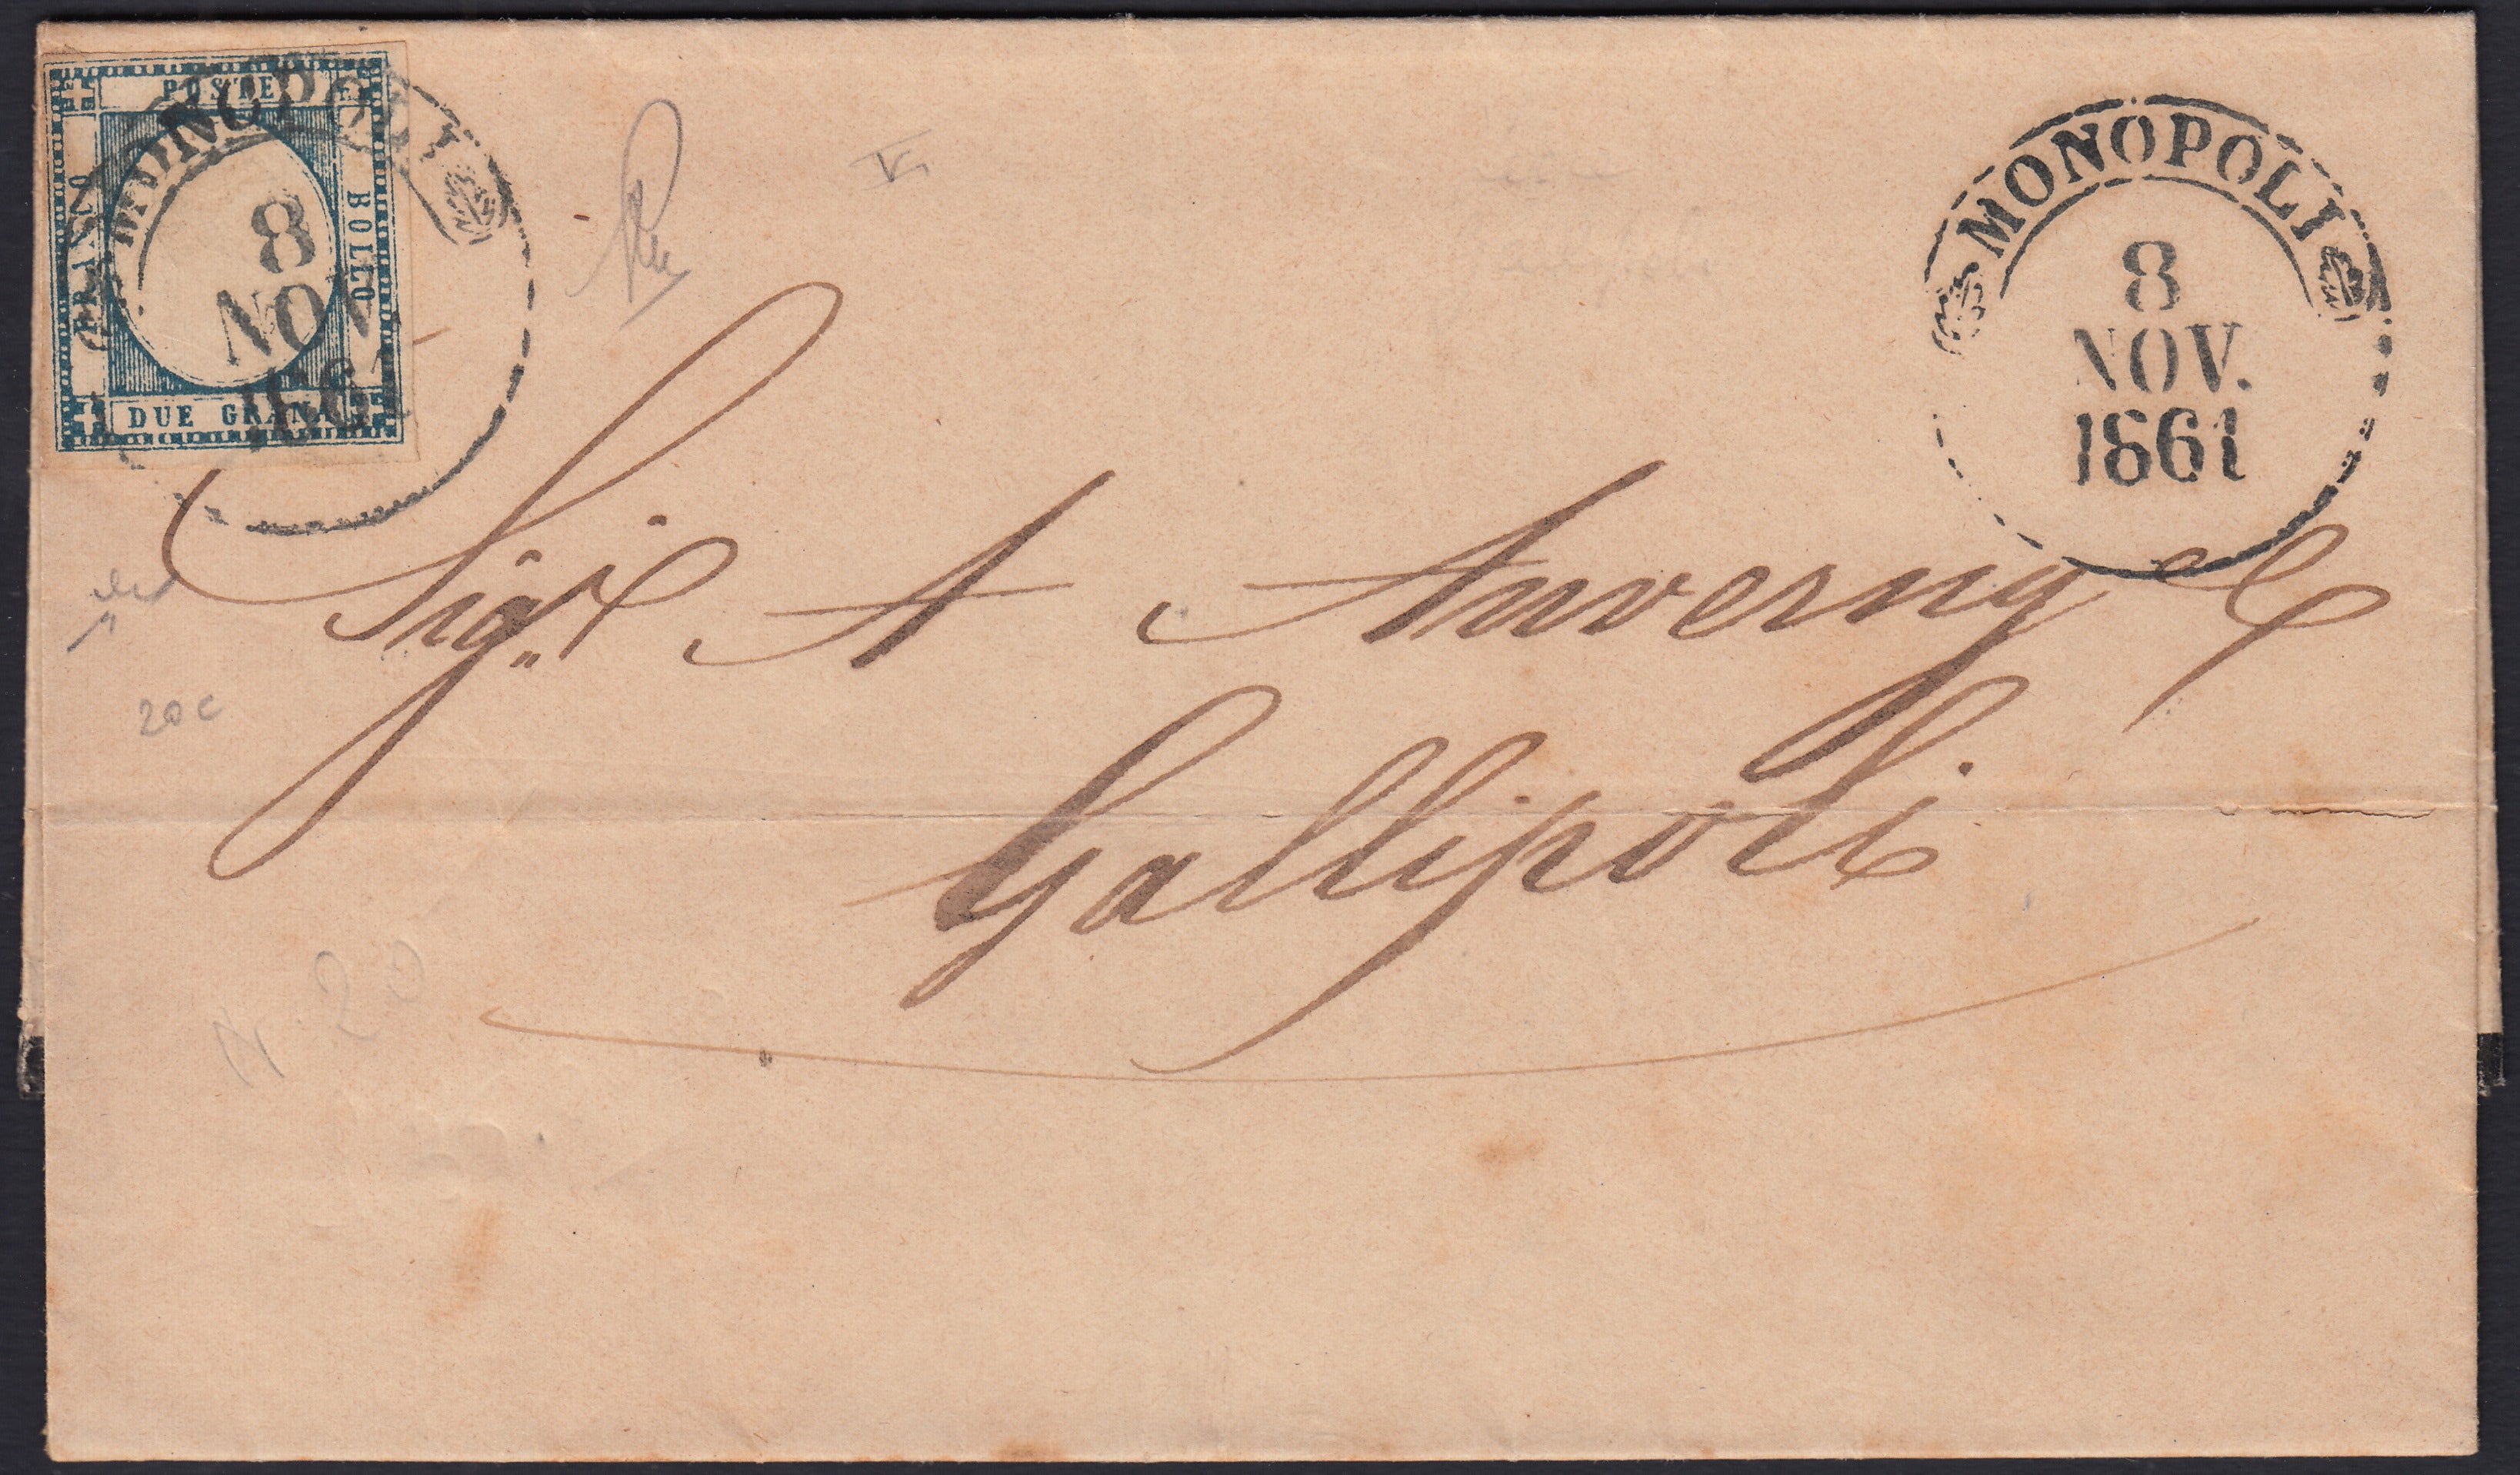 POSTE
FRANCO
BOLLO
DUE GRANA
MONOPOLI
8
NOV.
1861
MONOPOLI
8
NOV.
1861
Sig.ri A Auverny &
Gallipoli
20 c
N. 20